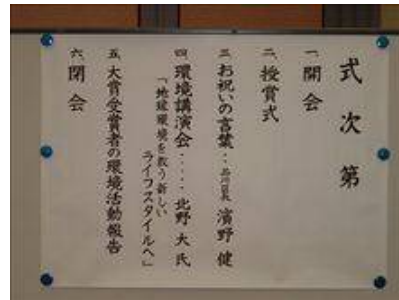 式次第
一、開会
二、授賞式
三、お祝いの言葉‥品川区長 濱野 健
四、環境講演会‥‥‥北野 大 氏
「地球環境を救う新しい
ライフスタイルへ」
五、大賞受賞者の環境活動報告
六、閉会